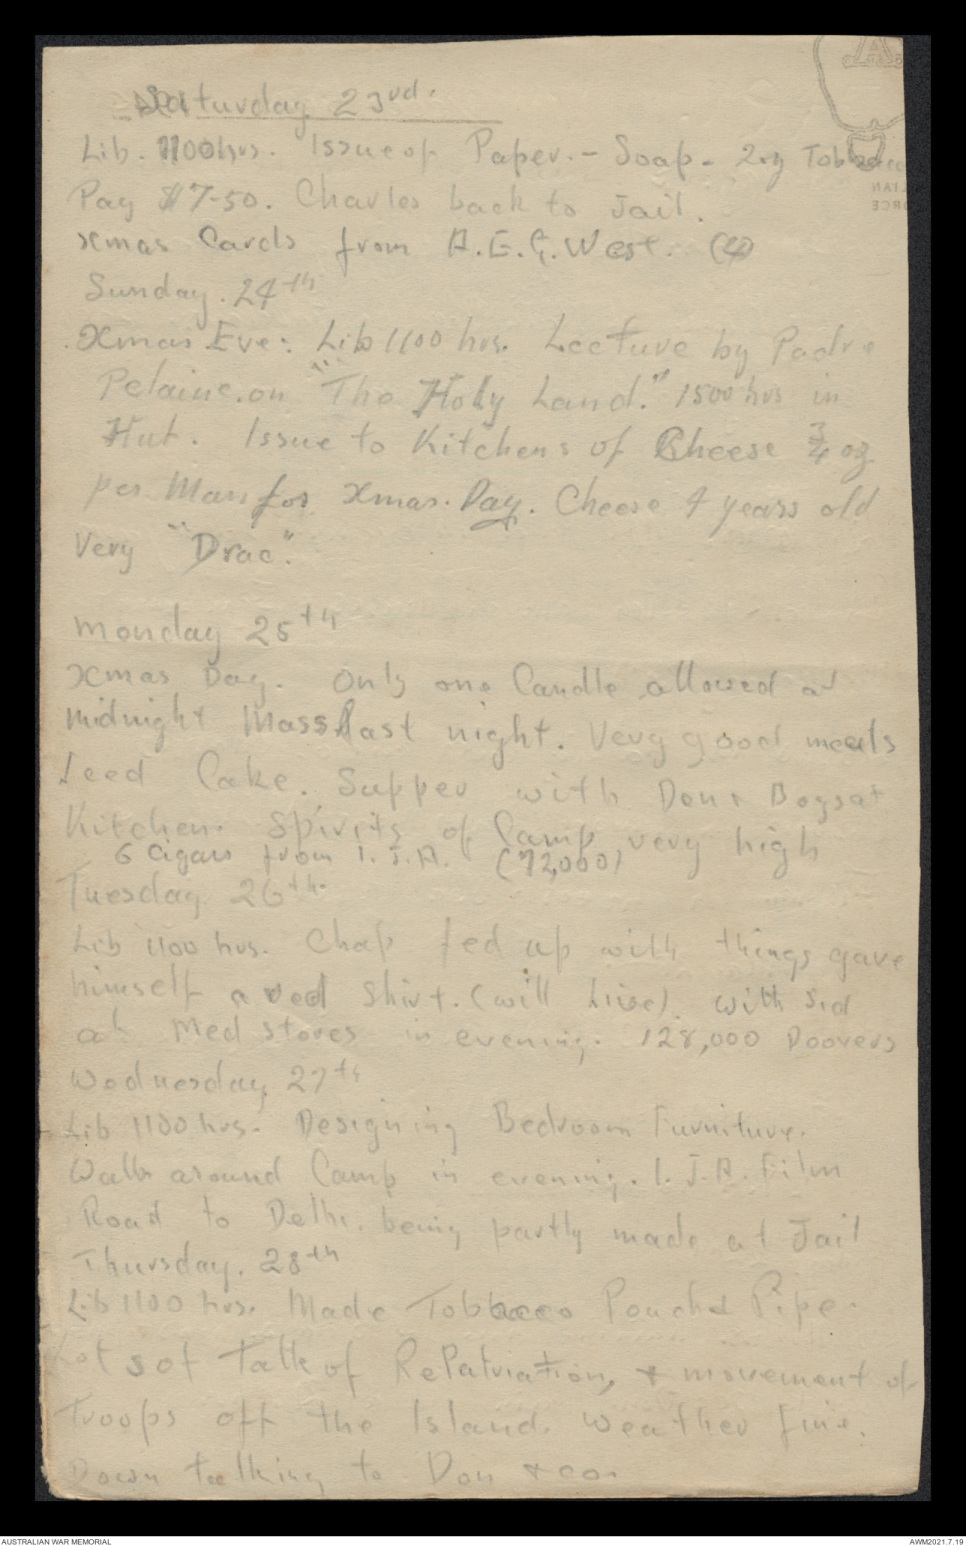 Saturday 23rd.
Lib. 1100hrs. Issue of Paper. - Soap - 2oz Tobacco
Pay $7-50. Charles back to Jail.
Xmas Cards from A.E.G. West. (4)
Sunday. 24th
Xmas Eve: Lib 1100 hrs. Lecture by Padre
Pelaine. on "The Holy Land." 1500 hrs in
Hut. Issue to Kitchens of Cheese 3/4 oz
per Man for Xmas. Day. Cheese 4 years old
Very "Drac".
Monday 25th
Xmas Day. Only one Candle allowed at
midnight Mass last night. Very good meals
Iced Cake. Supper with Don & Boys at
Kitchen. Spirits of Camp very high
6 Cigars from I.J.A. (72,000)
Tuesday 26th.
Lib 1100 hrs. Chap fed up with things gave
himself a red shirt. (will live). with Sid
at Med stores in evening. 128,000 Doovers
Wednesday 27th
Lib 1100 hrs. Designing Bedroom Furniture.
Walk around Camp in evening. I.J.A. Film
Road to Delhi. being partly made at Jail
Thursday. 28th
Lib 1100 hrs. Made Tobacco Pouch & Pipe.
Lots of Talk of RePatriation, & movement of
Troops off the Island. Weather fine.
Down talking to Don & co.
AUSTRALIAN WAR MEMORIAL
AWM2021.7.19